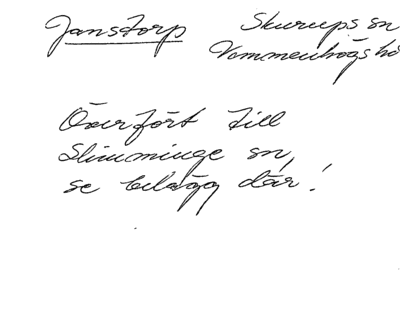 Janstorp Skurups sn
Vemmenhögs hd
Överfört till
Slimminge sn,
se belägg där!